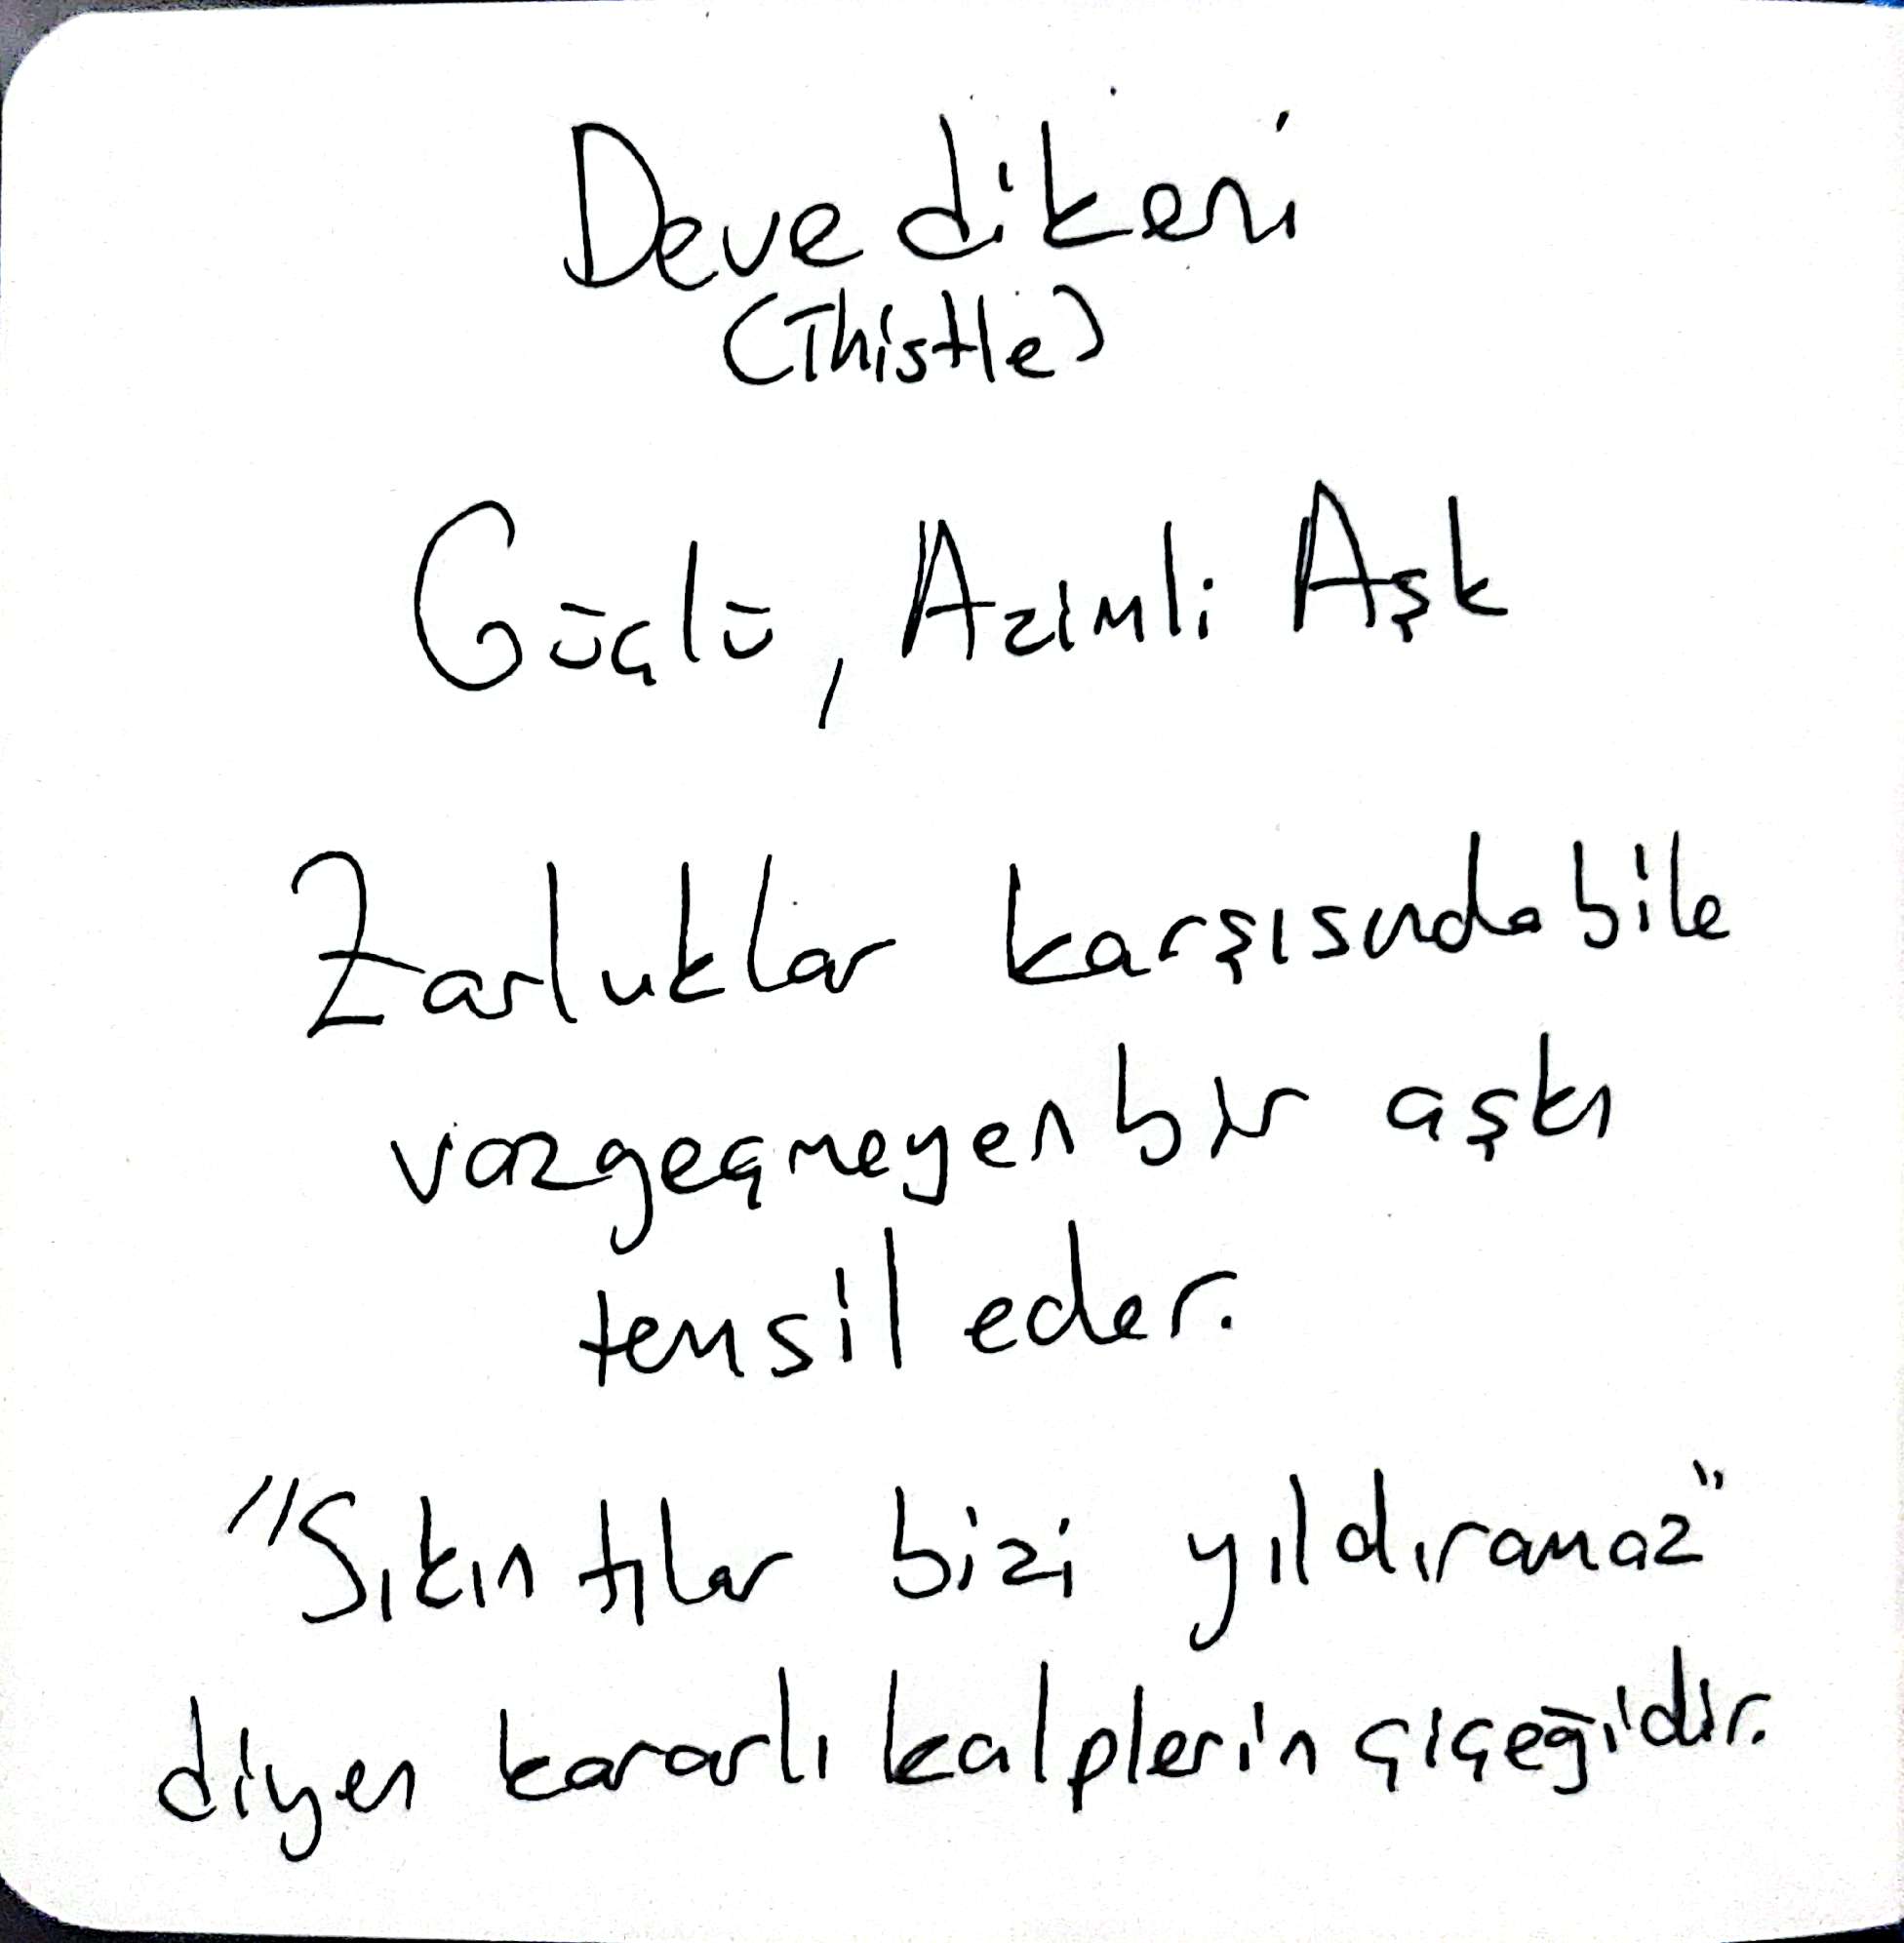 Deve dikeni
(Thistle)
Güçlü, Azimli Aşk
Zorluklar karşısında bile
vazgeçmeyen bir aşkı
temsil eder.
"Sıkıntılar bizi yıldıramaz"
diyen kararlı kalplerin çiçeğidir.